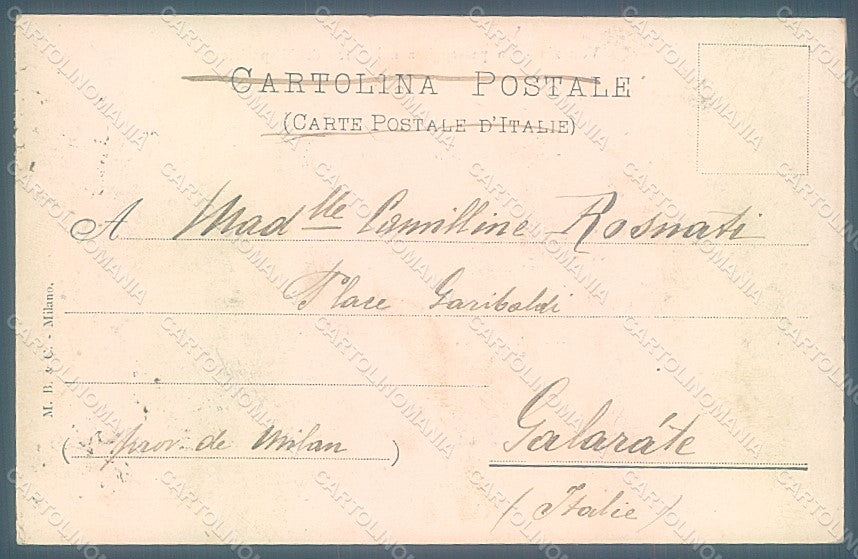 CARTOLINA POSTALE
(CARTE POSTALE D'ITALIE)
A Mad lle Camilline Rosnati
Place Garibaldi
(prov. de Milan)
Galaráte
(Italie)
M. B. & C. - Milano.
CARTOLINOMANIA